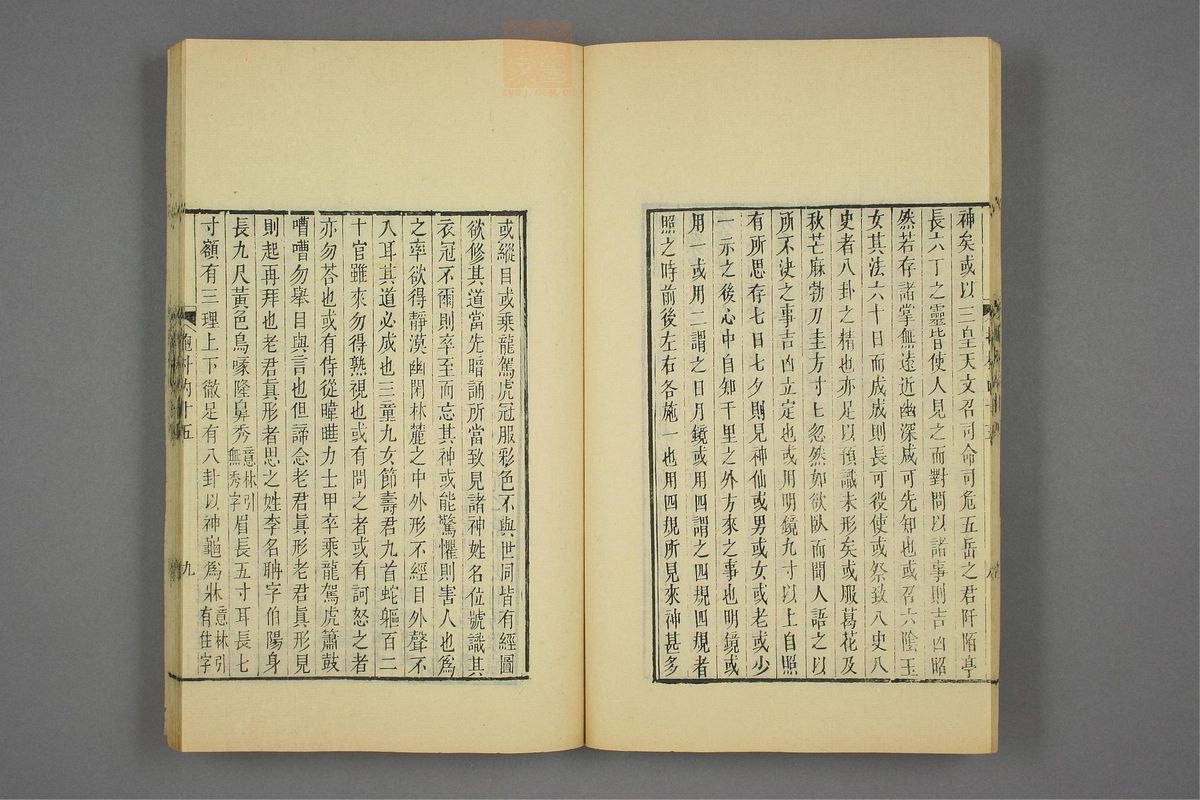 神矣或以三皇天文召司命司危五岳之君阡陌亭
長六丁之靈皆使人見之而對問以諸事則吉凶昭
然若存諸掌無遠近幽深咸可先知也或召六陰玉
女其法六十日而成成則長可役使或祭致八史八
史者八卦之精也亦足以預識未形矣或服葛花及
秋芒麻勃刀圭方寸匕忽然如欲臥而聞人語之以
所不決之事吉凶立定也或用明鏡九寸以上自照
有所思存七日七夕則見神仙或男或女或老或少
一示之後心中自知千里之外方來之事也明鏡或
用一或用二謂之日月鏡或用四謂之四規四規者
照之時前後左右各施一也用四規所見來神甚多
或縱目或乘龍駕虎冠服彩色不與世同皆有經圖
欲修其道當先暗誦所當致見諸神姓名位號識其
衣冠不爾則卒至而忘其神或能驚懼則害人也爲
之率欲得靜漠幽閑林麓之中外形不經目外聲不
入耳其道必成也三童九女節壽君九首蛇軀百二
十官雖來勿得熟視也或有問之者或有訶怒之者
亦勿荅也或有侍從暐曄力士甲卒乘龍駕虎簫鼓
嘈嘈勿舉目與言也但諦念老君眞形老君眞形見
則起再拜也老君眞形者思之姓李名聃字伯陽身
長九尺黃色鳥喙隆鼻秀意林引無秀字眉長五寸耳長七
寸額有三理上下徹足有八卦以神龜爲牀意林引有住字
九